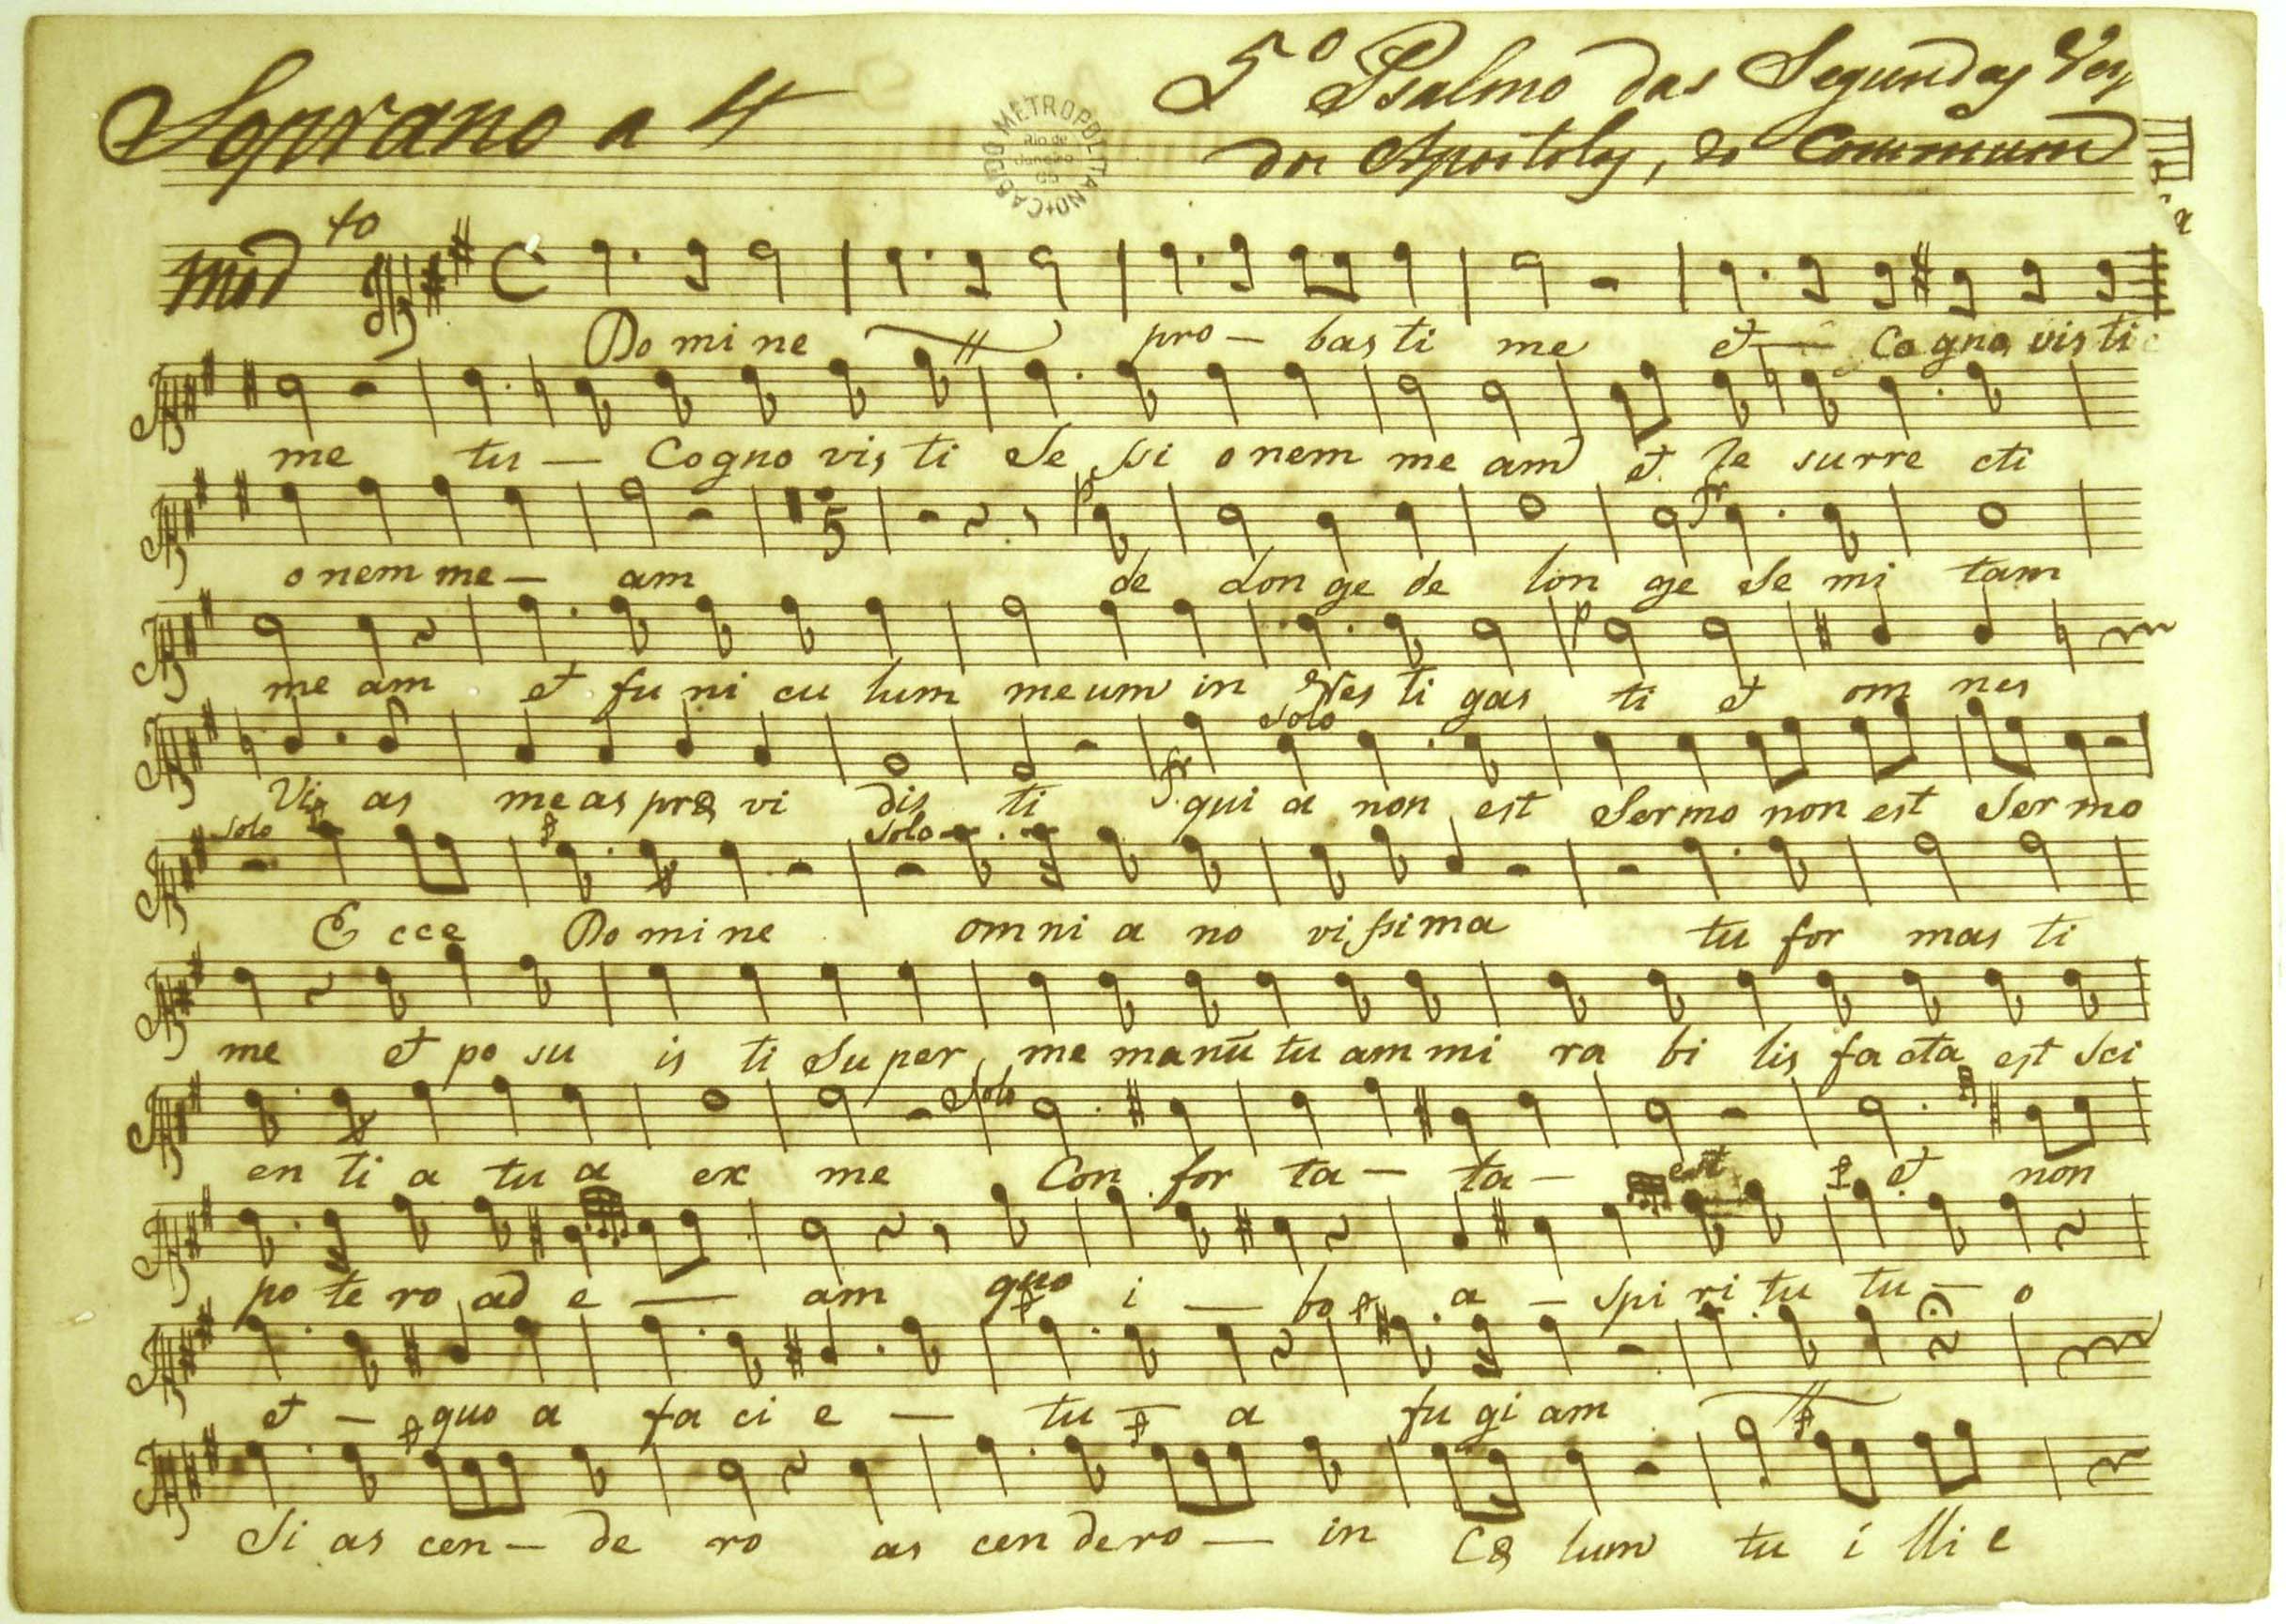 Soprano a 4
5º Psalmo das Segundas Ves
dos Apostolos, do Commum
CABIDO METROPOLITANO
Rio de
Janeiro
Modto
Domine pro-basti me et- Cognovisti
me tu- Cognovisti Sessionem meam et Re surre cti
5
onem me- am de Longe de longe Semitam
p fr
meam et funiculum meum in Vestigasti et omnes
p
Solo
Vias meas prævidisti quia non est Sermo non est Sermo
fr
Solo Solo
Ecce Domine omnia novissima tu formasti
me et posuisti Super me manũ tuam mirabilis facta est sci
Solo
entia tua ex me Confor ta- ta- est et non
potero ad e- am quo i- bo a- spiritu tu-o
et- quo a facie- tu- a fugiam
Si ascen-dero ascendero- in Cælum tu illic